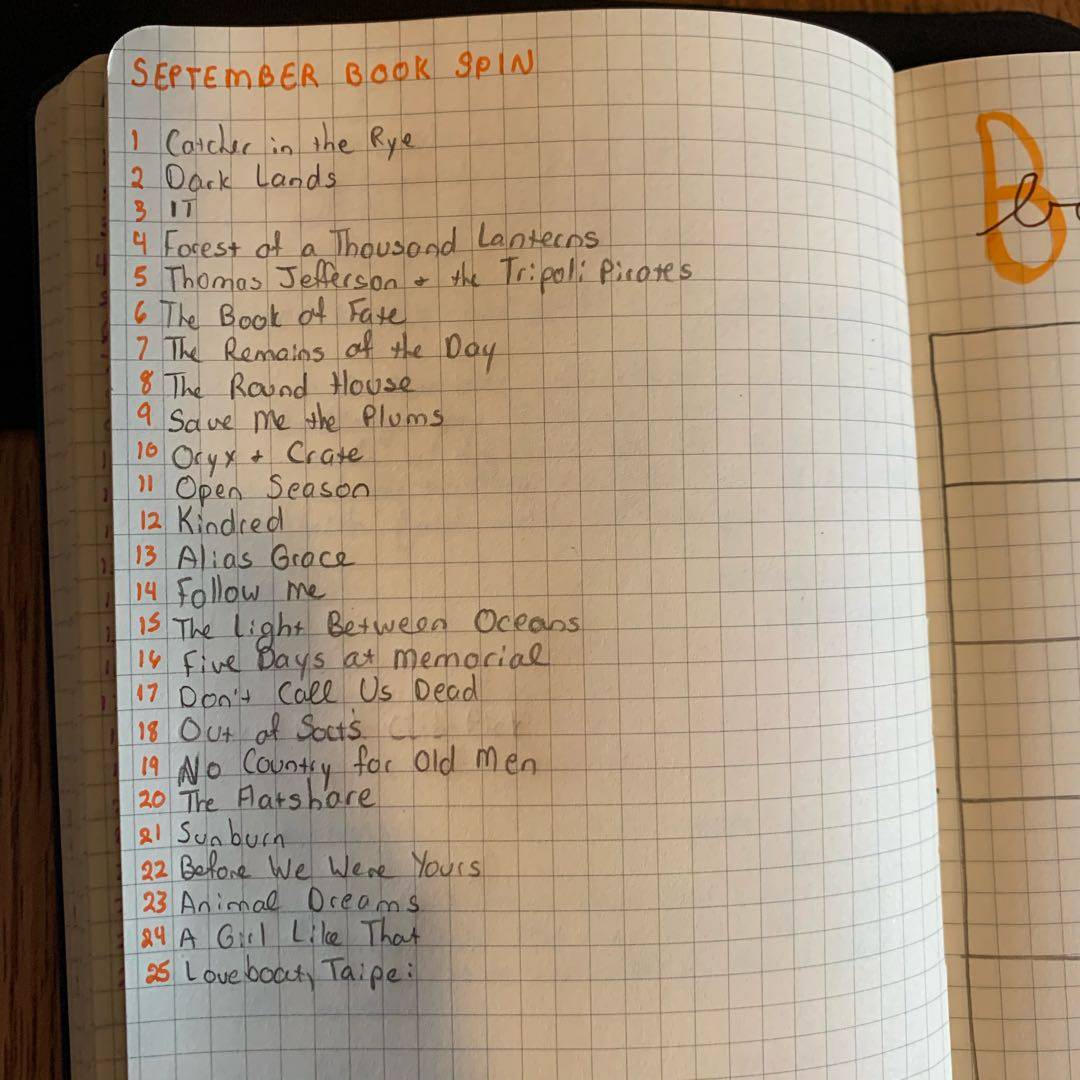 SEPTEMBER BOOK SPIN
1 Catcher in the Rye
2 Dark Lands
3 IT
4 Forest of a Thousand Lanterns
5 Thomas Jefferson + the Tripoli Pirates
6 The Book of Fate
7 The Remains of the Day
8 The Round House
9 Save Me the Plums
10 Oryx + Crake
11 Open Season
12 Kindred
13 Alias Grace
14 Follow me
15 The Light Between Oceans
16 Five Days at Memorial
17 Don't Call Us Dead
18 Out of Sorts
19 No Country for Old Men
20 The Flatshare
21 Sunburn
22 Before We Were Yours
23 Animal Dreams
24 A Girl Like That
25 Loveboat, Taipei